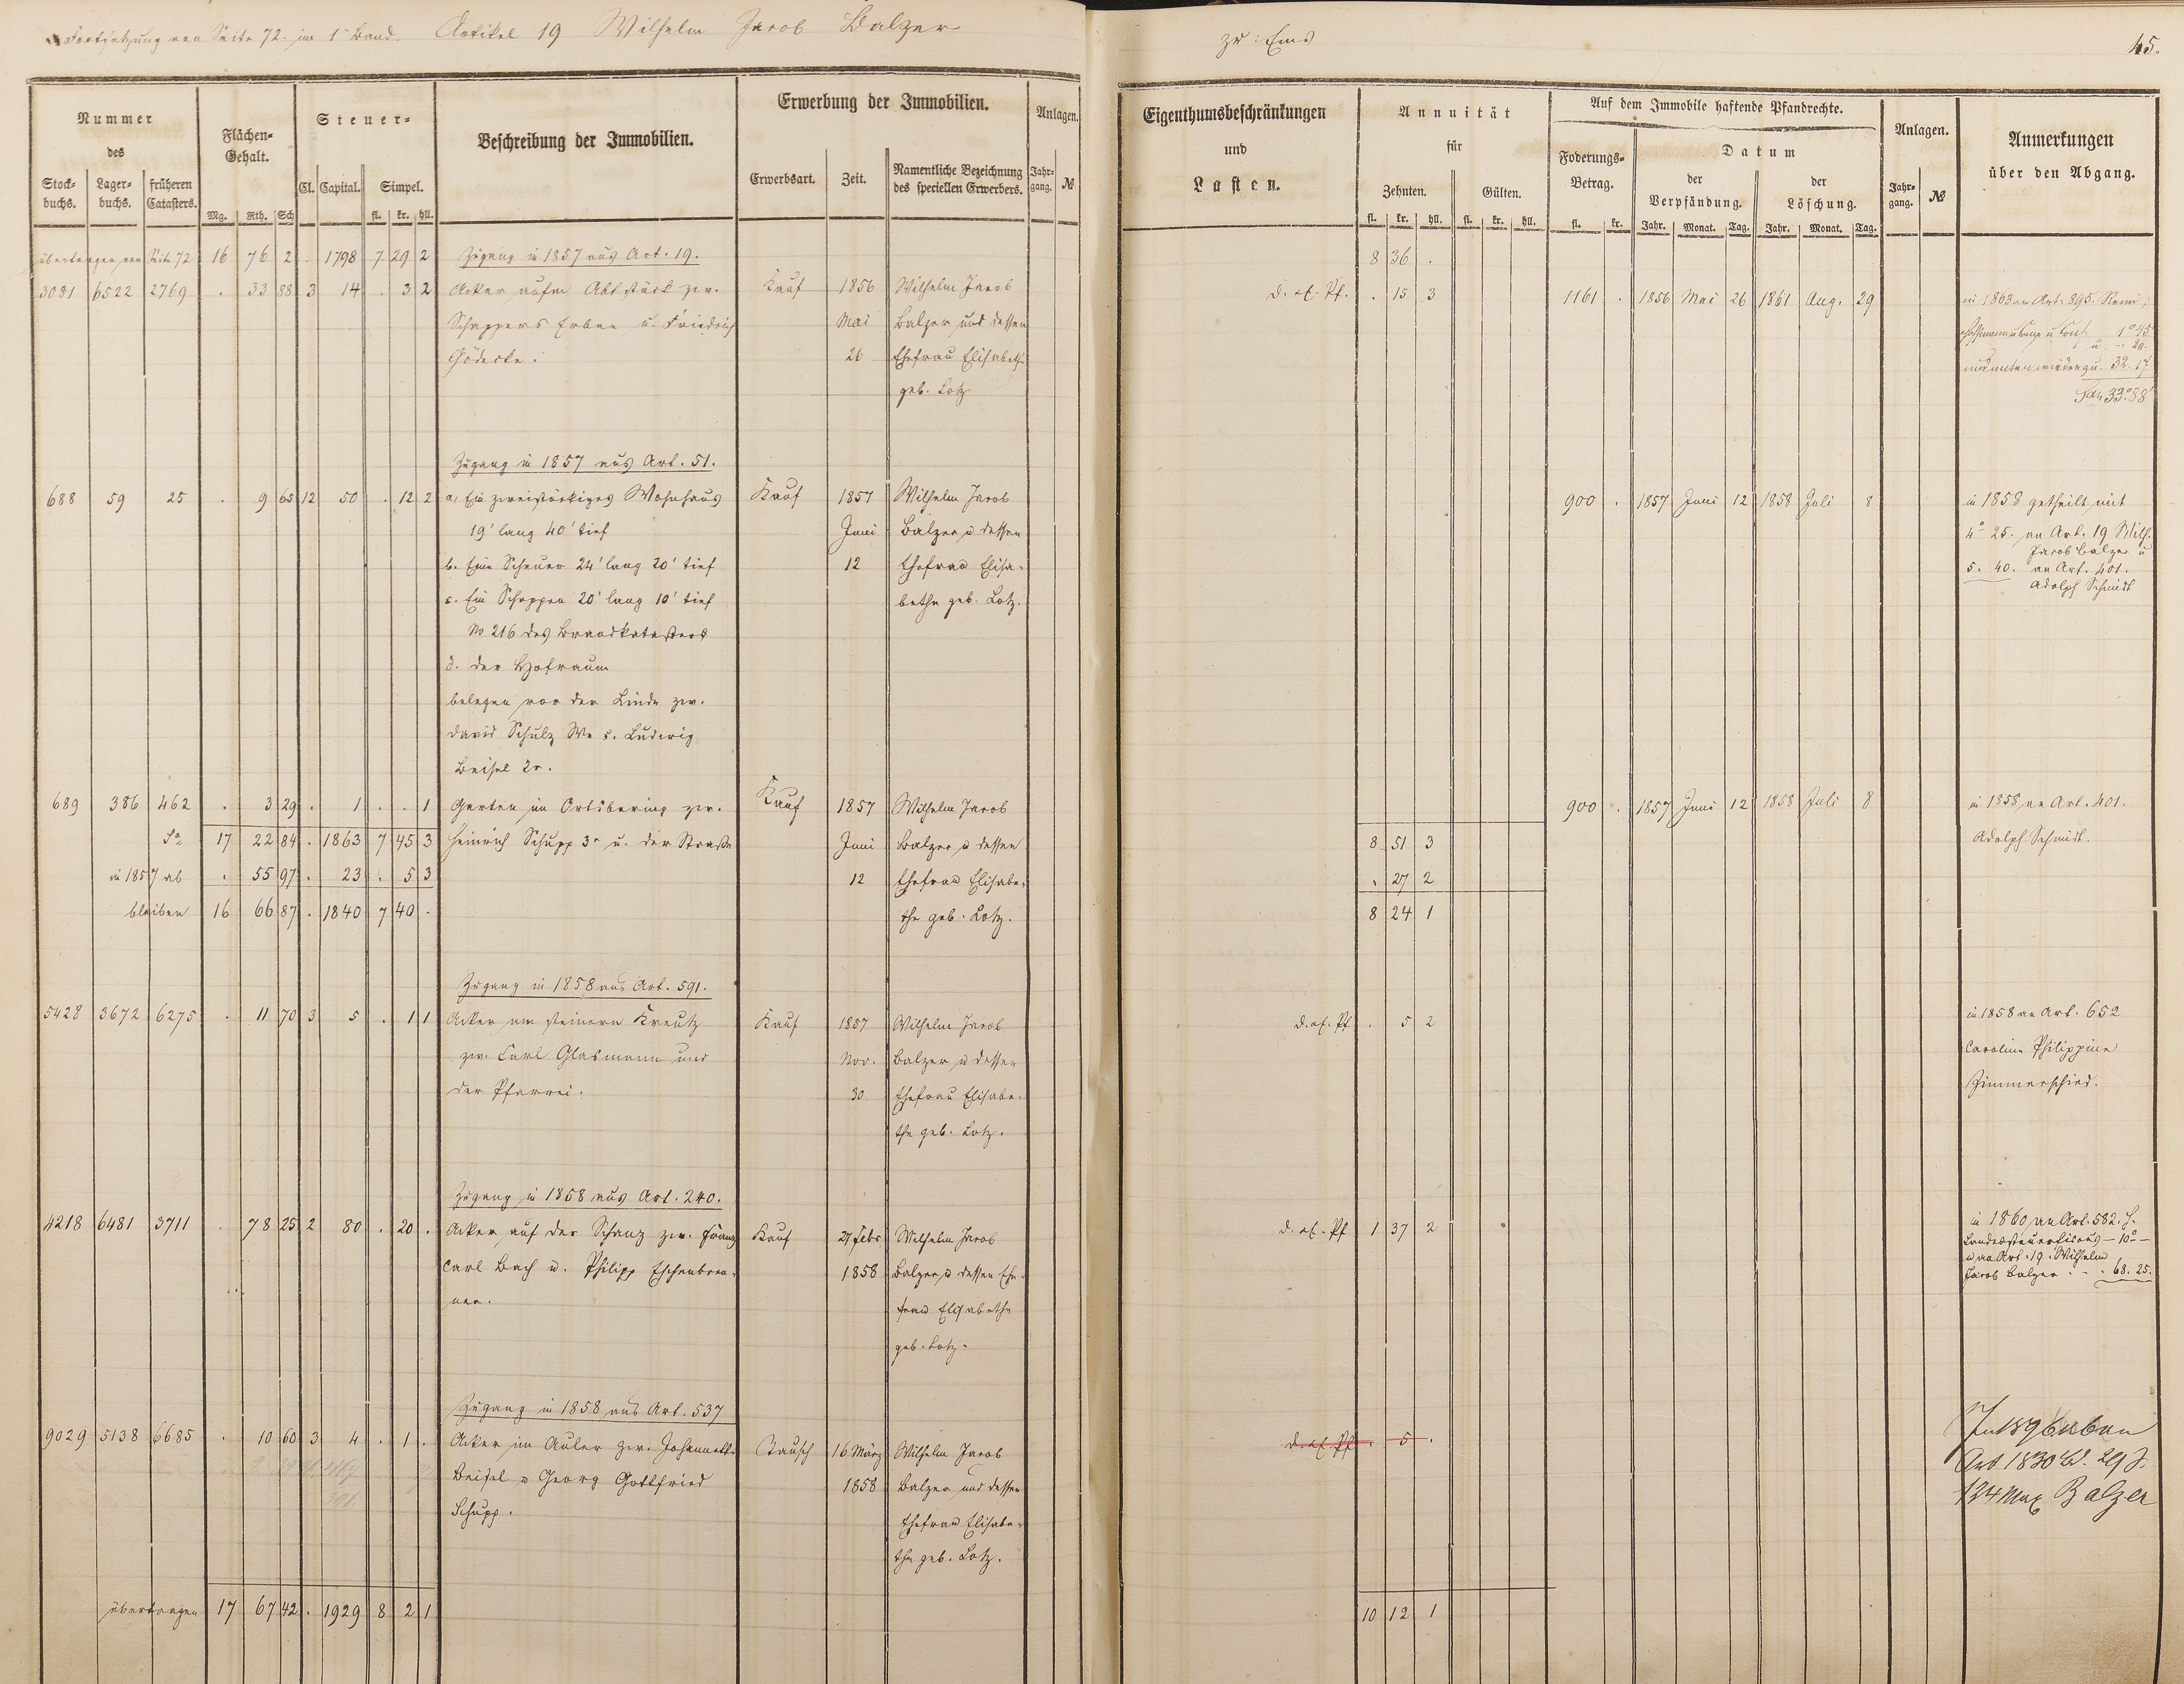 Fortsetzung von Seite 72. im 1n Band. Artikel 19 Wilhelm Jacob Balzer
zu Ems
45.
Nummer
des
Stock-
buchs.
Lager-
buchs.
früheren
Catasters.
Flächen-
Gehalt.
Mg. Rth. Sch
Steuer-
Cl. Capital. Simpel.
fl. kr. hll.
Beschreibung der Immobilien.
Erwerbung der Immobilien.
Erwerbsart. Zeit.
Namentliche Bezeichnung
des speciellen Erwerbers.
Anlagen.
Jahr-
gang. №
Eigenthumsbeschränkungen
und
Lasten.
Annuität
für
Zehnten. Gülten.
fl. kr. hll. fl. kr. hll.
Auf dem Immobile haftende Pfandrechte.
Foderungs-
Betrag.
fl. kr.
Datum
der
Verpfändung.
Jahr. Monat. Tag.
der
Löschung.
Jahr. Monat. Tag.
Anlagen.
Jahr-
gang. №
Anmerkungen
über den Abgang.
übertragen von Seite 72 16 76 2 . 1798 7 29 2 Zugang in 1857 aus Art. 19. 8 36 .
3081 6522 2769 . 33 88 3 14 . 3 2 Acker aufm zw. Kauf 1856 Wilhelm Jacob d. . Pf. . 15 3 1161 . 1856 Mai 26 1861 Aug. 29 in 1863 an Art. 895.
Schappers Erben u. Friedrich Mai Balzer und dessen 1° 45
Gödecke. 26 Ehefrau Elisabethe u. 26.
geb. Lotz 32. 17
Sa 33° 88'
Zugang in 1857 aus Art. 51.
688 59 25 . 9 65 12 50 . 12 2 a, Ein zweistöckiges Wohnhaus Kauf 1857 Wilhelm Jacob 900 . 1857 Juni 12 1858 Juli 8 in 1858 getheilt mit
19' lang 40' tief Juni Balzer u dessen 4° 25. an Art. 19 Wilh.
Jacob Balzer u
b. Eine Scheuer 24' lang 20' tief 12 Ehefrau Elisa- 5. 40. an Art. 401.
Adolph Schmidt
c. Ein Schoppen 20' lang 10' tief bethe geb. Lotz.
No 216 des Brandkatasters
d. der Hofraum
belegen vor der Linde zw.
David Schulz We u. Ludwig
Beisel 2r.
689 386 462 . 3 29 . 1 . . 1 Garten im Ortsbering zw. Kauf 1857 Wilhelm Jacob 900 . 1857 Juni 12 1858 Juli 8 in 1858 an Art. 401.
Sa 17 22 84 . 1863 7 45 3 Heinrich Schupp 3r u. der Straße Juni Balzer u dessen 8 51 3 Adolph Schmidt.
in 1857 ab . 55 97 . 23 . 5 3 12 Ehefrau Elisabe- . 27 2
bleiben 16 66 87 . 1840 7 40 . the geb. Lotz. 8 24 1
Zugang in 1858 aus Art. 591.
5428 3672 6275 . 11 70 3 5 . 1 1 Acker am steinern Kreutz Kauf 1857 Wilhelm Jacob d. . Pf . 5 2 in 1858 an Art. 652
zw. Carl Glasmann und Nov. Balzer u dessen Caroline Philippine
der Pfarrei. 30 Ehefrau Elisabe- Zimmerschied.
the geb. Lotz.
Zugang in 1858 aus Art. 240.
4218 6481 3711 . 78 25 2 80 . 20 . Acker auf der Schanz zw. Franz Kauf 27 Febr Wilhelm Jacob d. . Pf 1 37 2 in 1860 an Art. 582. H.
Landessteuerfiscus — 10°—
Carl Bach u. Philipp Eschenbren- 1858 Balzer u dessen Ehe- u an Art. 19. Wilhelm
Jacob Balzer . . . 68. 25.
ner. frau Elisabethe
geb. Lotz.
Zugang in 1858 aus Art. 537
9029 5138 6685 . 10 60 3 4 . 1 . Acker im Auler zw. Johannette Tausch 16 März Wilhelm Jacob d. . Pf . 5 . In 1896
Beisel u Georg Gottfried 1858 Balzer und dessen Art 1830 29
Schupp. Ehefrau Elisabe- 124 Max Balzer
the geb. Lotz.
übertragen 17 67 42 . 1929 8 2 1 10 12 1